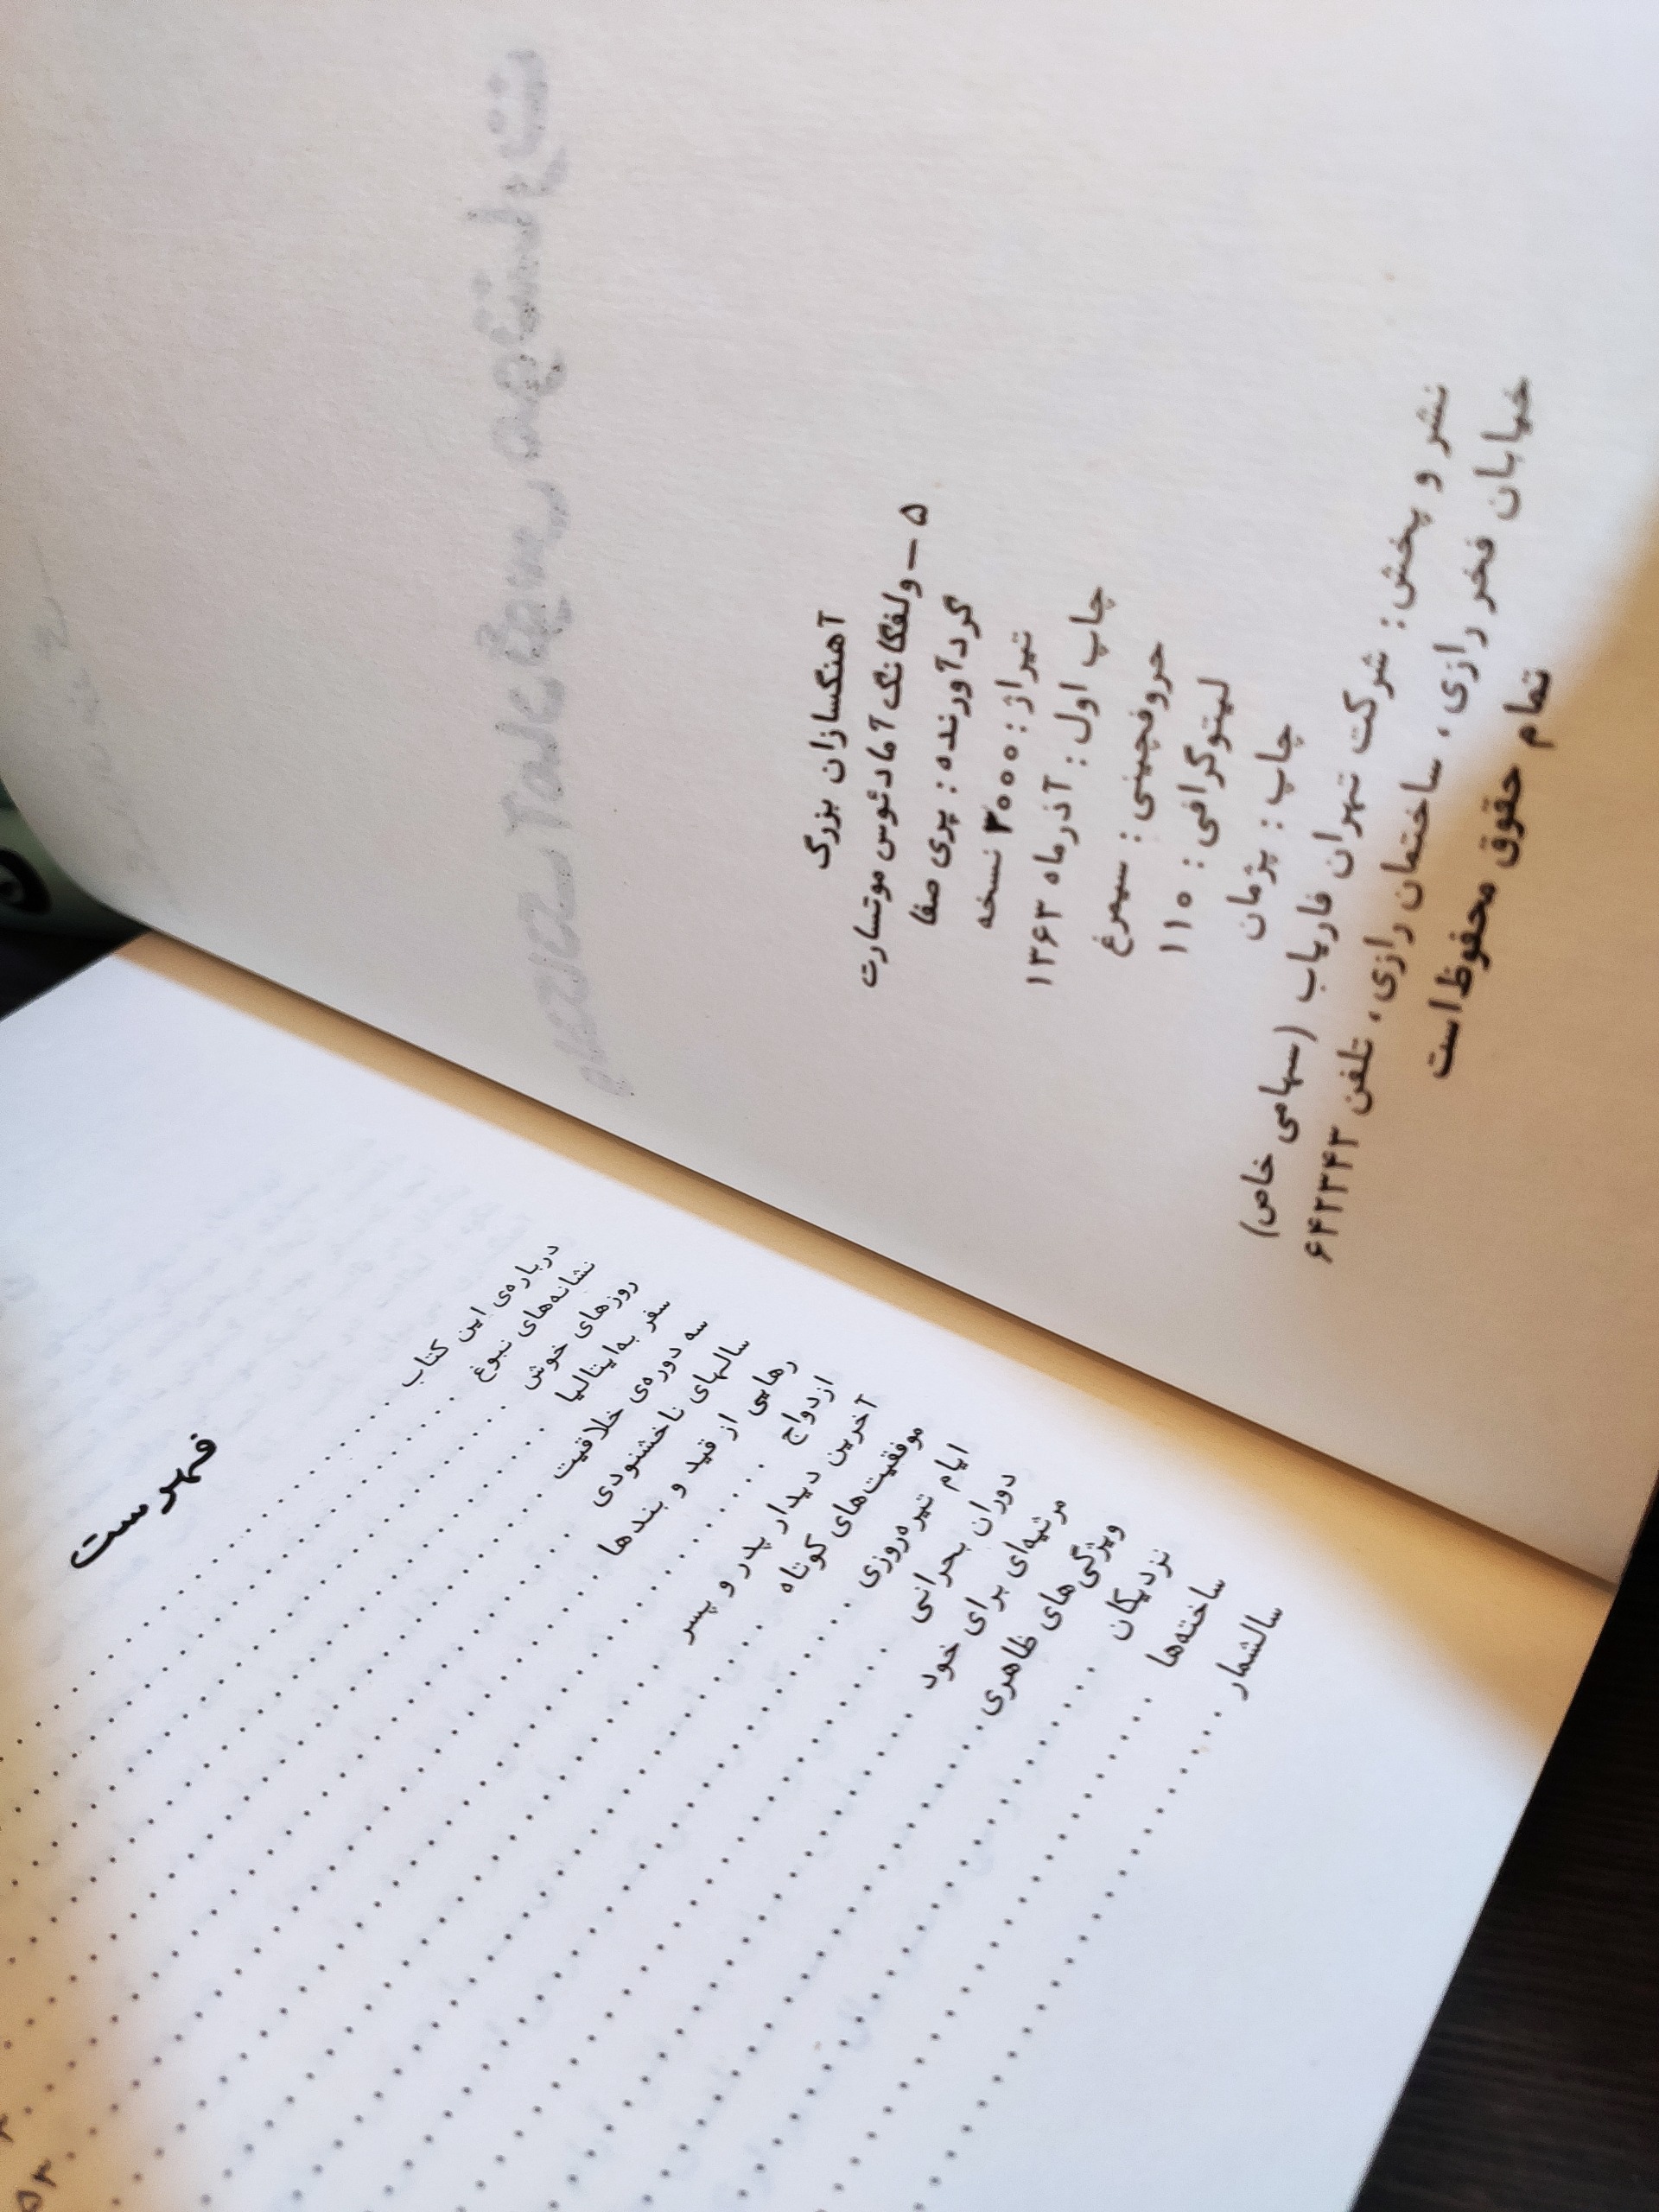 آهنگسازان بزرگ
۵ – ولفگانگ آمادئوس موتسارت
گردآورنده : پری صفا
تیراژ : ۳۰۰۰ نسخه
چاپ اول : آذرماه ۱۳۶۳
حروفچینی : سیمرغ
لیتوگرافی : ۱۱۰
چاپ : پژمان
نشر و پخش : شرکت تهران فاریاب (سهامی خاص)
خیابان فخر رازی، ساختمان رازی، تلفن ۶۴۲۳۴۳
تمام حقوق محفوظ است
فهرست
درباره‌ی این کتاب
نشانه‌های نبوغ
روزهای خوش
سفر به‌ایتالیا
سه دوره‌ی خلاقیت
سالهای ناخشنودی
رهایی از قید و بندها
ازدواج
آخرین دیدار پدر و پسر
موفقیت‌های کوتاه
ایام تیره‌روزی
دوران بحرانی
مرثیه‌ای برای خود
ویژگی‌های ظاهری
نزدیکان
ساخته‌ها
سالشمار